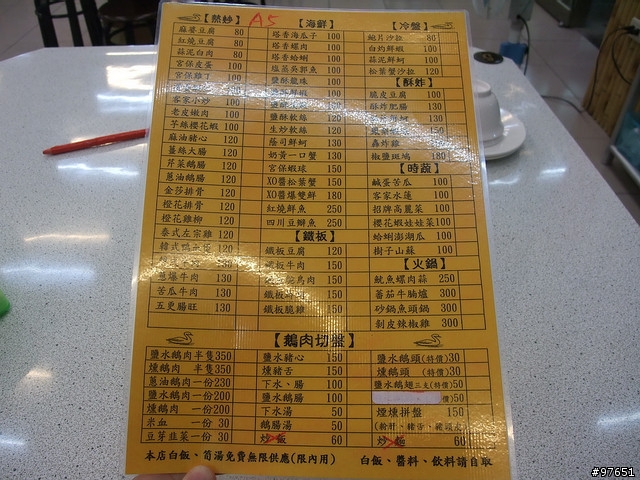 【熱炒】 A5
麻婆豆腐 80
紅燒豆腐 80
蒜泥白肉 80
宮保皮蛋 100
宮保雞丁 100
客家小炒 100
老皮嫩肉 100
芋絲櫻花蝦 100
麻油豬心 120
薑絲大腸 120
芹菜鵝腸 120
蔥油鵝腸 120
金莎排骨 120
橙花排骨 120
橙花雞柳 120
泰式左宗雞 120
蔥爆牛肉 130
苦瓜牛肉 130
五更腸旺 130
【海鮮】
塔香海瓜子 100
塔香螺肉 100
塔香蛤蜊 100
塩蒸吳郭魚 100
鹽酥龍珠 100
鹽酥軟絲 120
生炒軟絲 120
蔭豉鮮蚵 130
奶黃一口蟹 130
宮保蝦球 150
XO醬松葉蟹 150
XO醬爆雙鮮 180
紅燒鮮魚 250
四川豆瓣魚 250
【鐵板】
鐵板豆腐 120
鐵板牛肉 150
鐵板脆雞 150
【冷盤】
鮑片沙拉 80
白灼鮮蝦 100
蒜泥鮮蚵 100
松葉蟹沙拉 120
【酥炸】
脆皮豆腐 100
酥炸肥腸 130
椒鹽斑鳩 180
【時蔬】
鹹蛋苦瓜 100
客家水蓮 100
招牌高麗菜 100
櫻花蝦娃娃菜 100
蛤蜊澎湖瓜 100
樹子山蘇 100
【火鍋】
魷魚螺肉蒜 250
蕃茄牛腩爐 300
砂鍋魚頭鍋 300
剝皮辣椒雞 300
【鵝肉切盤】
鹽水鵝肉 半隻 350
燻鵝肉 半隻 350
蔥油鵝肉 一份 230
鹽水鵝肉 一份 200
燻鵝肉 一份 200
米血 一份 30
豆芽韭菜 一份 30
鹽水豬心 150
燻豬舌 150
下水、腸 100
鹽水鵝腸 100
下水湯 50
鵝腸湯 50
炒飯 60
鹽水鵝頭(特價) 30
燻鵝頭 (特價) 30
鹽水鵝翅三支(特價) 50
價) 50
煙燻拼盤 150
炒麵 60
本店白飯、筍湯免費無限供應(限內用) 白飯、醬料、飲料請自取
#97651